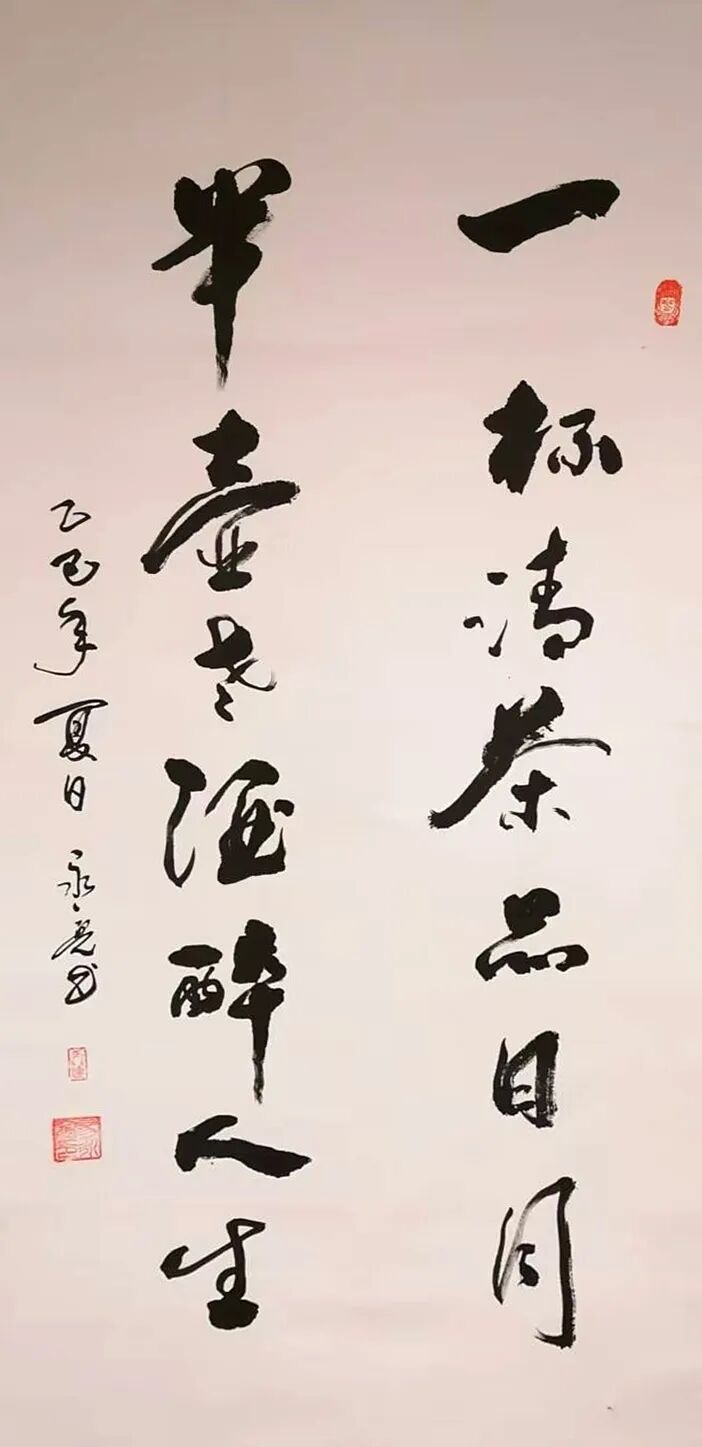 一杯清茶品日月
半壶老酒醉人生
乙巳年夏日永亮书